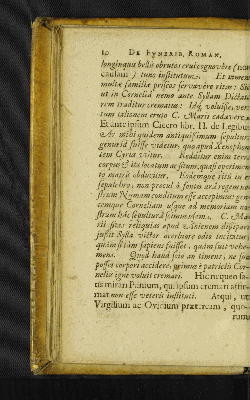 10 DE FVNERIB, ROMAN.
longinquis bellis obrutos erui cognovere (nam
causam) tunc institutum. Et tamen
multæ familiæ priscos servavere ritus: Sic
ut in Cornelia nemo ante Syllam Dictato-
rem traditur crematus: Idq; voluisse, veri-
tum talionem eruto C. Marii cadavere.
Et ante ipsum Cicero libr. II. de Legibus
At mihi quidem antiquissimum sepulturæ
genus id fuisse videtur, quo apud Xenophon-
tem Cyrus vtitur. Redditur enim terræ
corpus & ita locatum ac situm, quasi operimen-
to matris obducitur. Eodemque ritu in eo
sepulchro, non procul à fontis ara regem no-
strum Numam conditum esse accepimus: gen-
temque Corneliam usque ad memoriam no-
stram hac sepultura scimus usam. C. Ma-
rii sitas reliquias apud Anienem dissipari
jussit Sylla victor acerbiore odio incitatus,
quàm si tam sapiens fuisset, quàm fuit vehe-
mens. Quod haud scio an timens, ne suo
posset corpori accidere, primus è patriciis Cor-
neliis igne voluit cremari. Hic requen sa-
tis mirari Plinium, qui ipsum cremari affir-
mat non esse veteris instituti. Atqui, ut
Virgilium ac Ovidium præteream, quo-
rum